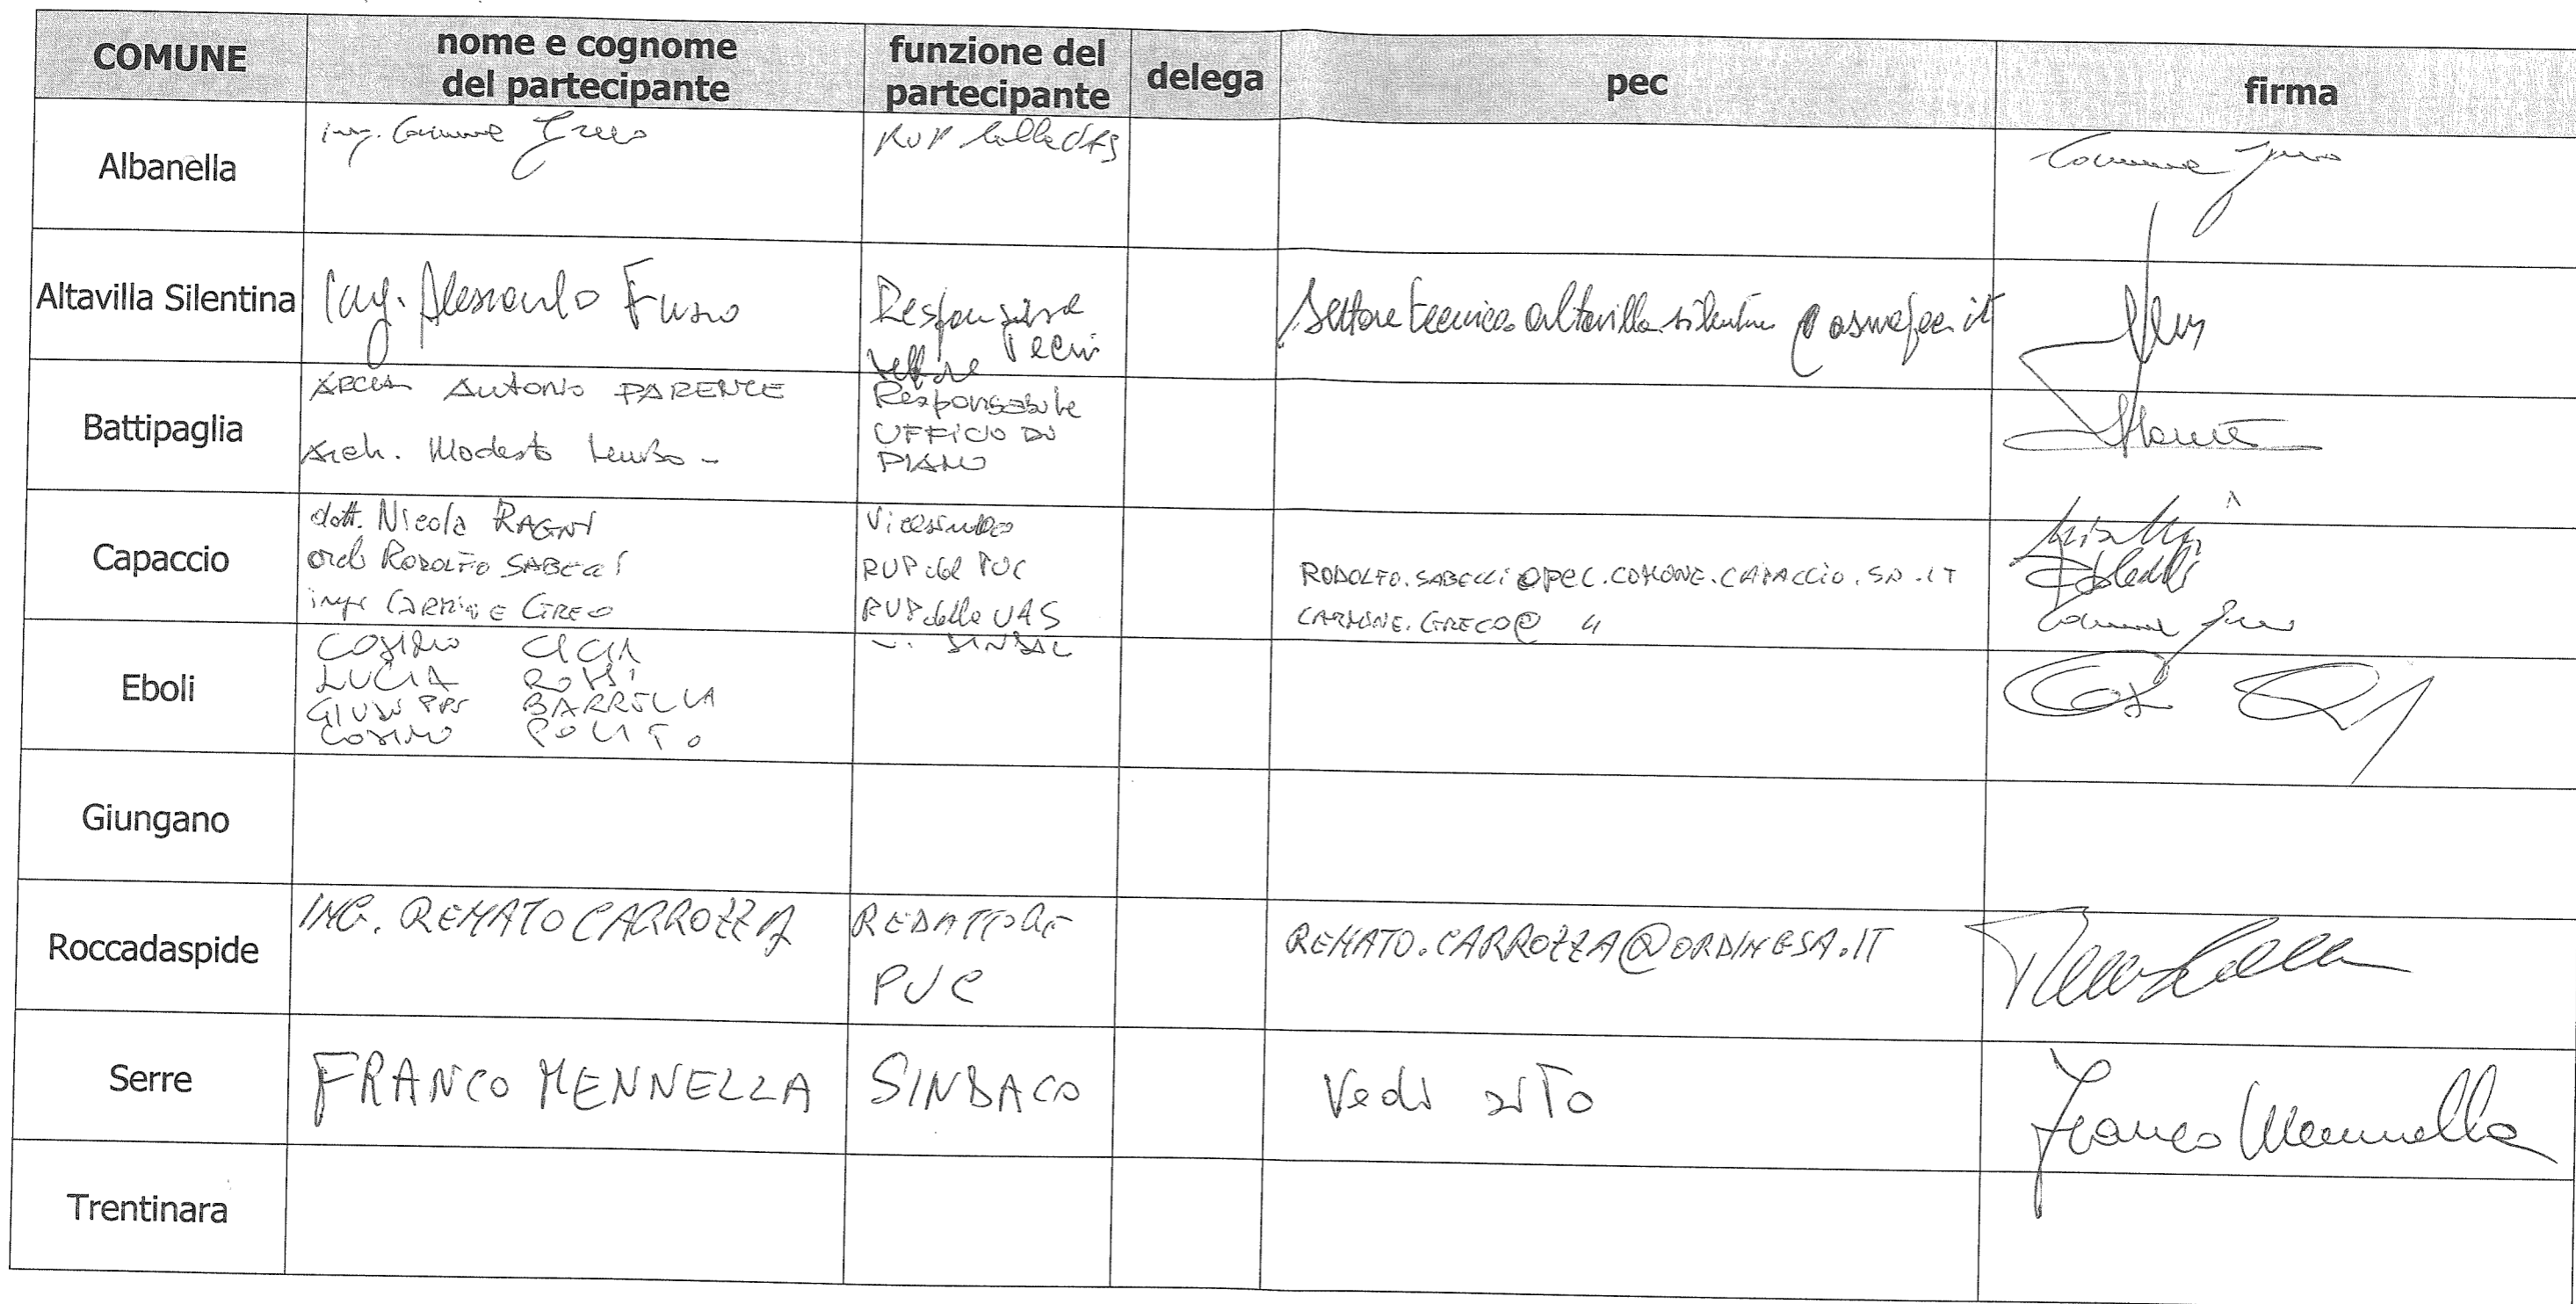 COMUNE
nome e cognome
del partecipante
funzione del
partecipante
delega
pec
firma
Albanella
ing. Carmine Greco
RUP della VAS
Carmine Greco
Altavilla Silentina
Ing. Alessandro Fusco
Responsabile
Settore
Battipaglia
Arch. Antonio PARENTE
Arch. Modesto Lembo -
Responsabile
UFFICIO DI
PIANO
Capaccio
dott. Nicola RAGNI
arch RODOLFO SABELLI
ing. CARMINE GRECO
Vicesindaco
RUP del PUC
RUP della VAS
RODOLFO.SABELLI@PEC.COMUNE.CAPACCIO.SA.IT
CARMINE.GRECO@ "
Carmine Greco
Eboli
COSIMO CICIA
LUCIA ROSSI
GIUSEPPE BARRELLA
COSIMO POLITO
V. SINDAC
Giungano
Roccadaspide
ING. RENATO CARROZZA
REDATTORE
PUC
RENATO.CARROZZA@ORDINGSA.IT
Serre
FRANCO MENNELLA
SINDACO
Vedi sito
Franco Mennella
Trentinara